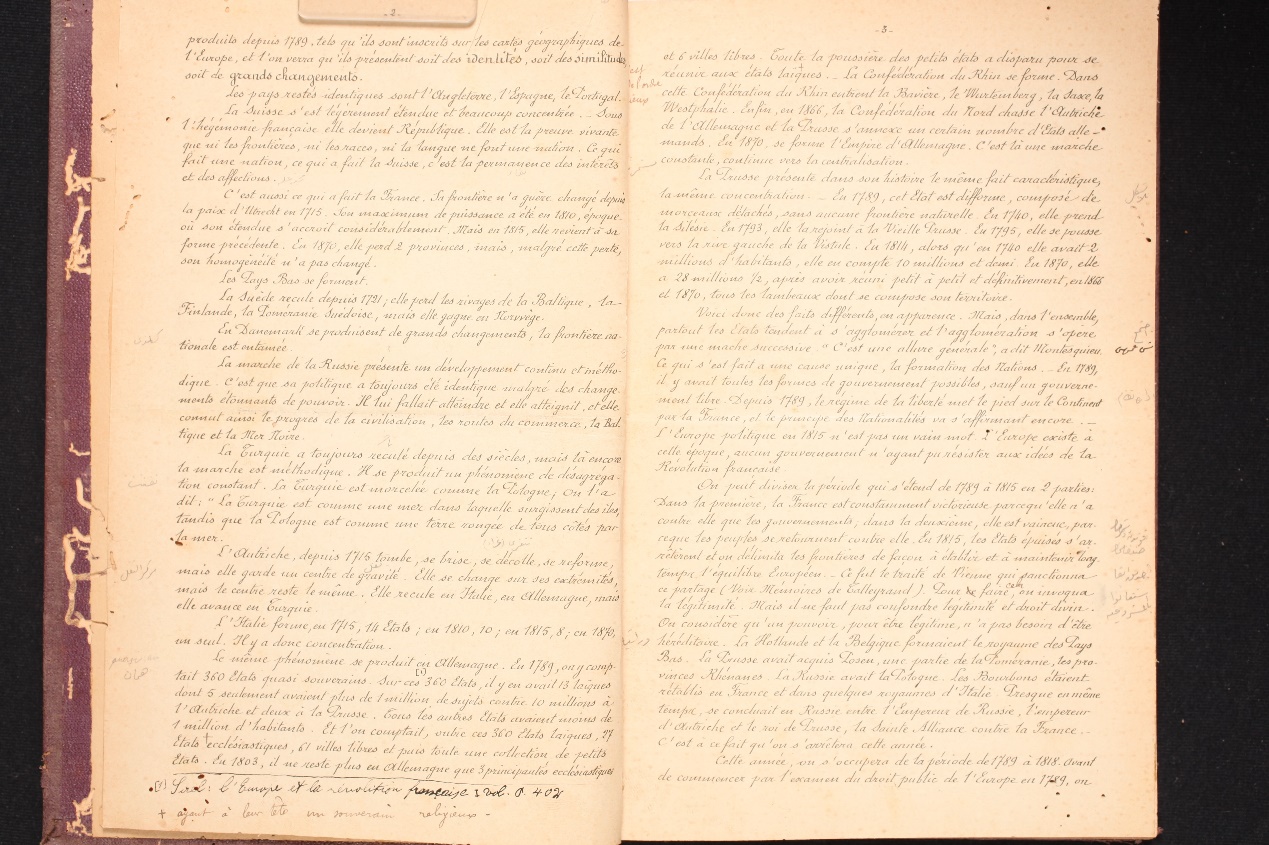 - 2 -
produits depuis 1789, tels qu'ils sont inscrits sur les cartes géographiques de
l'Europe, et l'on verra qu'ils présentent soit des identités, soit des similitudes
soit de grands changements.
Les pays restés identiques sont l'Angleterre, l'Espagne, le Portugal.
La Suisse s'est légèrement étendue et beaucoup concentrée. — Sous
l'hégémonie française elle devient République. Elle est la preuve vivante
que ni les frontières, ni les races, ni la langue ne font une nation. Ce qui
fait une nation, ce qui a fait la Suisse, c'est la permanence des intérêts
et des affections.
C'est aussi ce qui a fait la France. Sa frontière n'a guère changé depuis
la paix d'Utrecht en 1715. Son maximum de puissance a été en 1810, époque
où son étendue s'accroît considérablement. Mais en 1815, elle revient à sa
forme précédente. En 1870, elle perd 2 provinces, mais, malgré cette perte,
son homogénéité n'a pas changé.
Les Pays Bas se forment.
La Suède recule depuis 1721; elle perd les rivages de la Baltique, la
Finlande, la Poméranie Suédoise, mais elle gagne en Norwège.
En Danemark se produisent de grands changements, la frontière na-
tionale est entamée.
La marche de la Russie présente un développement continu et métho-
dique. C'est que sa politique a toujours été identique malgré des change-
ments étonnants de pouvoir. Il lui fallait atteindre et elle atteignit, et elle
connut ainsi le progrès de la civilisation, les routes du commerce, la Bal
tique et la Mer Noire.
La Turquie a toujours reculé depuis des siècles, mais là encore
la marche est méthodique. Il se produit un phénomène de désagréga-
tion constant. La Turquie est morcelée comme la Pologne; on l'a
dit: "La Turquie est comme une mer dans laquelle surgissent des îles,
tandis que la Pologne est comme une terre rongée de tous côtés par
la mer.
L'Autriche, depuis 1715 tombe, se brise, se décolle, se reforme,
mais elle garde un centre de gravité. Elle se change sur ses extrémités,
mais le centre reste le même. Elle recule en Italie, en Allemagne, mais
elle avance en Turquie.
L'Italie forme, en 1715, 14 Etats; en 1810, 10; en 1815, 8; en 1870,
un seul. Il y a donc concentration.
Le même phénomène se produit en Allemagne. En 1789, on y comp-
tait 360 Etats quasi souverains. Sur ces 360 Etats, il y en avait 13 laïques
dont 5 seulement avaient plus de 1 million de sujets contre 10 millions à
l'Autriche et deux à la Prusse. Tous les autres Etats avaient moins de
1 million d'habitants. Et l'on comptait, outre ces 360 Etats laïques, 77
Etats + ecclésiastiques, 61 villes libres et puis toute une collection de petits
Etats. En 1803, il ne reste plus en Allemagne que 3 principautés ecclésiastiques
(1) Sorel: l'Europe et la révolution française 1 vol. P 402
+ ayant à leur tête un souverain religieux -
- 3 -
et 6 villes libres. Toute la poussière des petits états a disparu pour se
réunir aux états laïques. — La Confédération du Rhin se forme. Dans
cette Confédération du Rhin entrent la Bavière, le Wurtemberg, la Saxe, la
Westphalie. Enfin, en 1866, la Confédération du Nord chasse l'Autriche
de l'Allemagne et la Prusse s'annexe un certain nombre d'Etats alle-
mands. En 1870, se forme l'Empire d'Allemagne. C'est là une marche
constante, continue vers la centralisation.
La Prusse présente dans son histoire le même fait caractéristique,
la même concentration. — En 1789, cet Etat est difforme, composé de
morceaux détachés, sans aucune frontière naturelle. En 1740, elle prend
la Silésie. En 1793, elle la rejoint à la Vieille Prusse. En 1795, elle se pousse
vers la rive gauche de la Vistule. En 1814, alors qu'en 1740 elle avait 2
millions d'habitants, elle en compte 10 millions et demi. En 1870, elle
a 28 millions ½, après avoir réuni petit à petit et définitivement, en 1866
et 1870, tous les lambeaux dont se compose son territoire.
Voici donc des faits différents, en apparence. Mais, dans l'ensemble,
partout les Etats tendent à s'agglomérer et l'agglomération s'opère
par une mache successive. "C'est une allure générale", a dit Montesquieu.
Ce qui s'est fait a une cause unique, la formation des Nations. — En 1789,
il y avait toutes les formes de gouvernement possibles, sauf un gouverne-
ment libre. Depuis 1789, le régime de la liberté met le pied sur le Continent
par la France, et le principe des Nationalités va s'affirmant encore. —
L'Europe politique en 1815 n'est pas un vain mot. L'Europe existe à
cette époque, aucun gouvernement n'ayant pu résister aux idées de la
Révolution française.
On peut diviser la période qui s'étend de 1789 à 1815 en 2 parties:
Dans la première, la France est constamment victorieuse parcequ'elle n'a
contre elle que les gouvernements; dans la deuxième, elle est vaincue, par-
ceque les peuples se retournent contre elle. En 1815, les Etats épuisés s'ar-
rêtèrent et on délimita les frontières de façon à établir et à maintenir long
temps l'équilibre Européen. — Ce fut le traité de Vienne qui sanctionna
ce partage (Voir Mémoires de Talleyrand). Pour le faire, on invoqua
la légitimité. Mais il ne faut pas confondre légitimité et droit divin.
On considère qu'un pouvoir, pour être légitime, n'a pas besoin d'être
héréditaire. La Hollande et la Belgique formaient le royaume des Pays
Bas. La Prusse avait acquis Posen, une partie de la Poméranie, les pro-
vinces Rhénanes. La Russie avait la Pologne. Les Bourbons étaient
rétablis en France et dans quelques royaumes d'Italie. Presque en même
temps, se concluait en Russie entre l'Empereur de Russie, l'empereur
d'Autriche et le roi de Prusse, la Sainte Alliance contre la France.
C'est à ce fait qu'on s'arrêtera cette année.
Cette année, on s'occupera de la période de 1789 à 1818. Avant
de commencer par l'examen du droit public de l'Europe en 1789, on